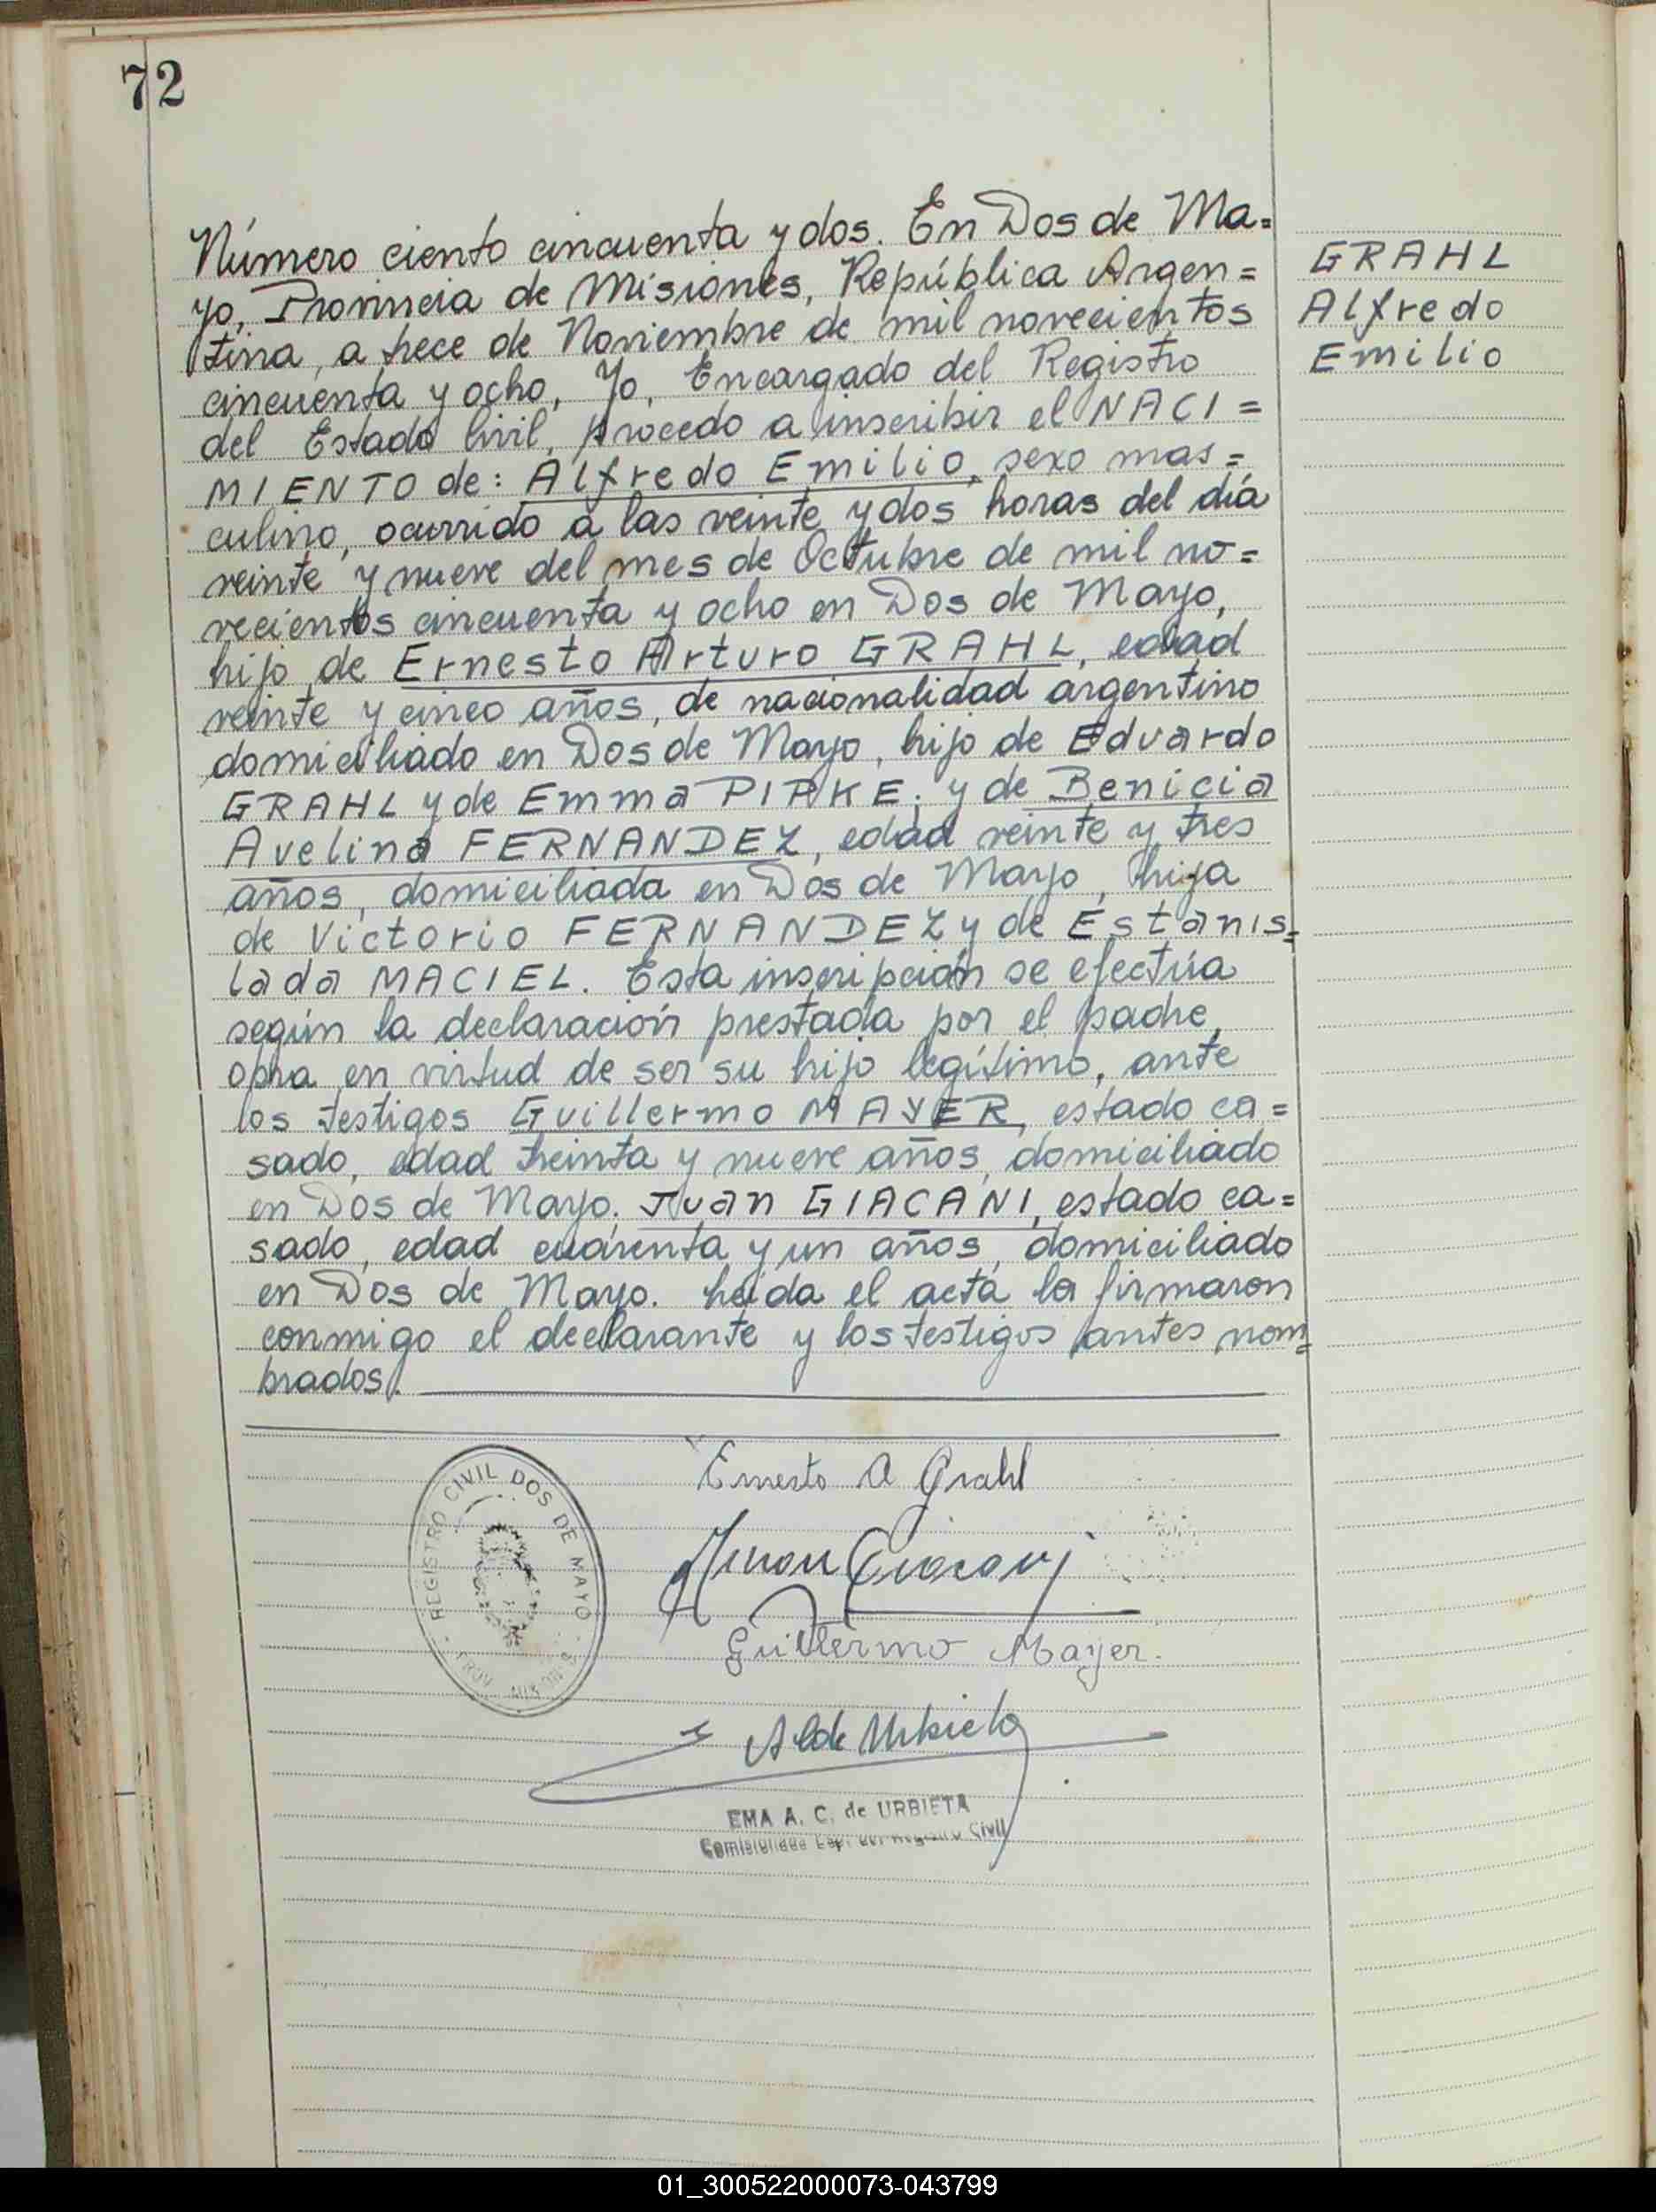 72
Número ciento cincuenta y dos. En Dos de Ma=
yo, Provincia de Misiones, República Argen=
tina, a trece de Noviembre de mil novecientos
cincuenta y ocho, Yo, Encargado del Registro
del Estado Civil, procedo a inscribir el NACI=
MIENTO de: Alfredo Emilio, sexo mas=
culino, ocurrido a las veinte y dos horas del día
veinte y nueve del mes de Octubre de mil no=
vecientos cincuenta y ocho en Dos de Mayo,
hijo de Ernesto Arturo GRAHL, edad
veinte y cinco años, de nacionalidad argentino
domiciliado en Dos de Mayo, hijo de Eduardo
GRAHL y de Emma PIPKE; y de Benicia
Avelina FERNANDEZ, edad veinte y tres
años, domiciliada en Dos de Mayo, hija
de Victorio FERNANDEZ y de Estanis=
lada MACIEL. Esta inscripción se efectúa
según la declaración prestada por el padre,
obra en virtud de ser su hijo legítimo, ante
los testigos Guillermo MAYER, estado ca=
sado, edad treinta y nueve años, domiciliado
en Dos de Mayo. Juan GIACANI, estado ca=
sado, edad cuarenta y un años, domiciliado
en Dos de Mayo. Leída el acta la firmaron
conmigo el declarante y los testigos antes nom=
brados.
GRAHL
Alfredo
Emilio
REGISTRO CIVIL DOS DE MAYO
Ernesto A Grahl
Juan Giacani
Guillermo Mayer.
A de Urbieta
EMA A. C. de URBIETA
Civil
01_300522000073-043799